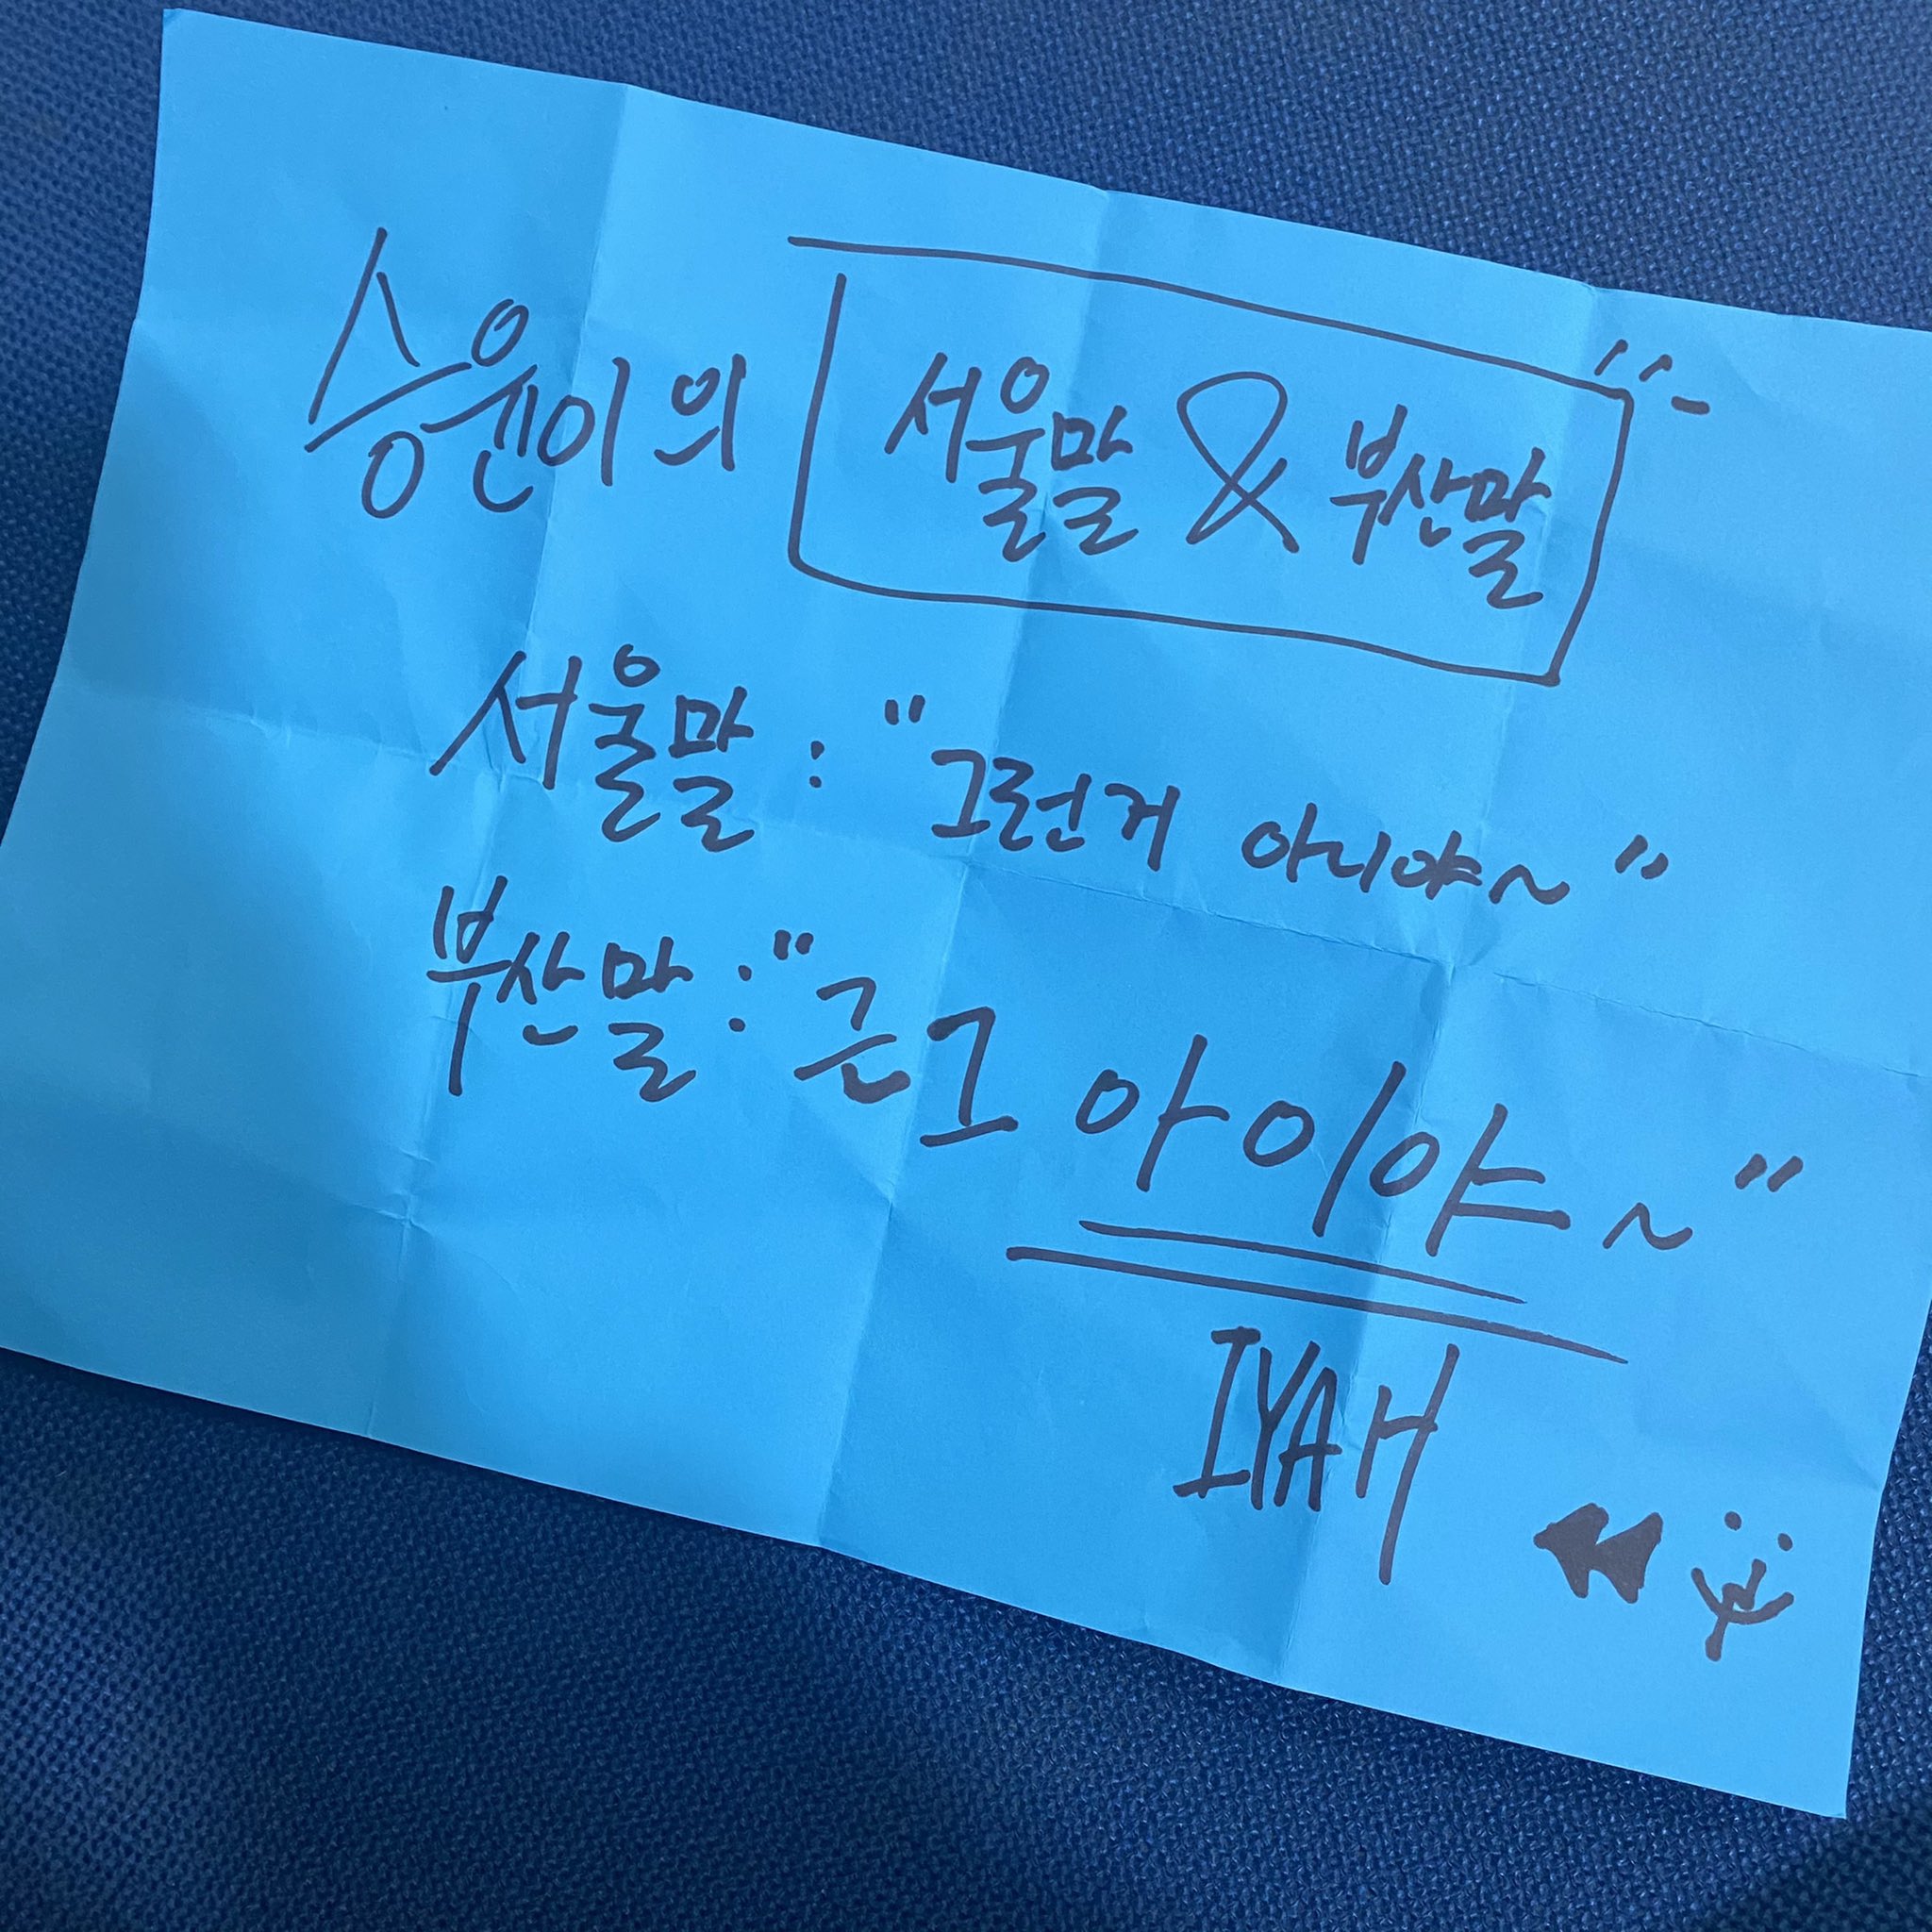 승윤이의 서울말 & 부산말
서울말 : "그런거 아니야~"
부산말 : "근그 아이야~"
IYAH